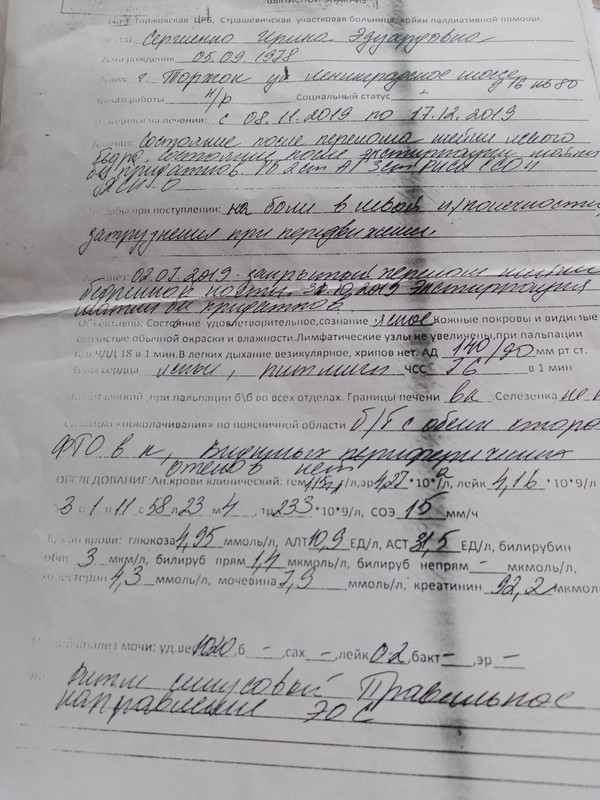 ВЫПИСНОЙ ЭПИКРИЗ
Торжокская ЦРБ, Страшевичская участковая больница, койки паллиативной помощи.
Ф.И.О. Сергиенко Ирина Эдуардовна
Дата рождения 05.09.1978
Адрес г. Торжок ул Ленинградское шоссе д 16 кв 80
Место работы н/р Социальный статус
находился на лечении: с 08.11.2019 по 17.12.2019
Диагноз: Состояние после перелома шейки левого
бедра. Состояние после экстирпации матки
без придатков. ГБ 2ст АГ 3ст риск
Жалобы при поступлении: на боли в левой н/конечности,
затруднения при передвижении
Анамнез: 02.07.2019 - закрытый перелом шейки
бедренной кости. 31.10.2019 экстирпация
матки без придатков.
Объективно: Состояние удовлетворительное, сознание ясное Кожные покровы и видимые
слизистые обычной окраски и влажности. Лимфатические узлы не увеличены, при пальпации
б/б ЧДД 18 в 1 мин. В легких дыхание везикулярное, хрипов нет. АД 140/90 мм рт ст.
Тоны сердца ясные, ритмичн ЧСС 76 в 1 мин
Живот мягкий, при пальпации б\б во всех отделах. Границы печени вн Селезенка не
Симптом «поколачивания» по поясничной области б/б с обеих сторо
ФТО в н, видимых периферических
отеков нет
ОБСЛЕДОВАНИЕ: Ан. крови клинический: гем /л, эр 4,27 *10*12/л, лейк 4,16 *10*9/л
Э 3 п 1 н с 58 л 23 м 4, тр 233 *10*9/л, СОЭ 15 мм/ч
Б/х ан крови: глюкоза 4,95 ммоль/л, АЛТ 10,9 ЕД/л, АСТ 31,5 ЕД/л, билирубин
общ 3 мкм/л, билируб прям 1,4 мкмоль/л, билируб непрям - мкмоль/л,
холестерин 4,3 ммоль/л, мочевина 7,9 ммоль/л, креатинин 92,2 мкмоль
Общий анализ мочи: уд.вес 1020, б -, сах -, лейк 0-2, бакт -, эр -
Ритм синусовый Правильное
направление ЭОС